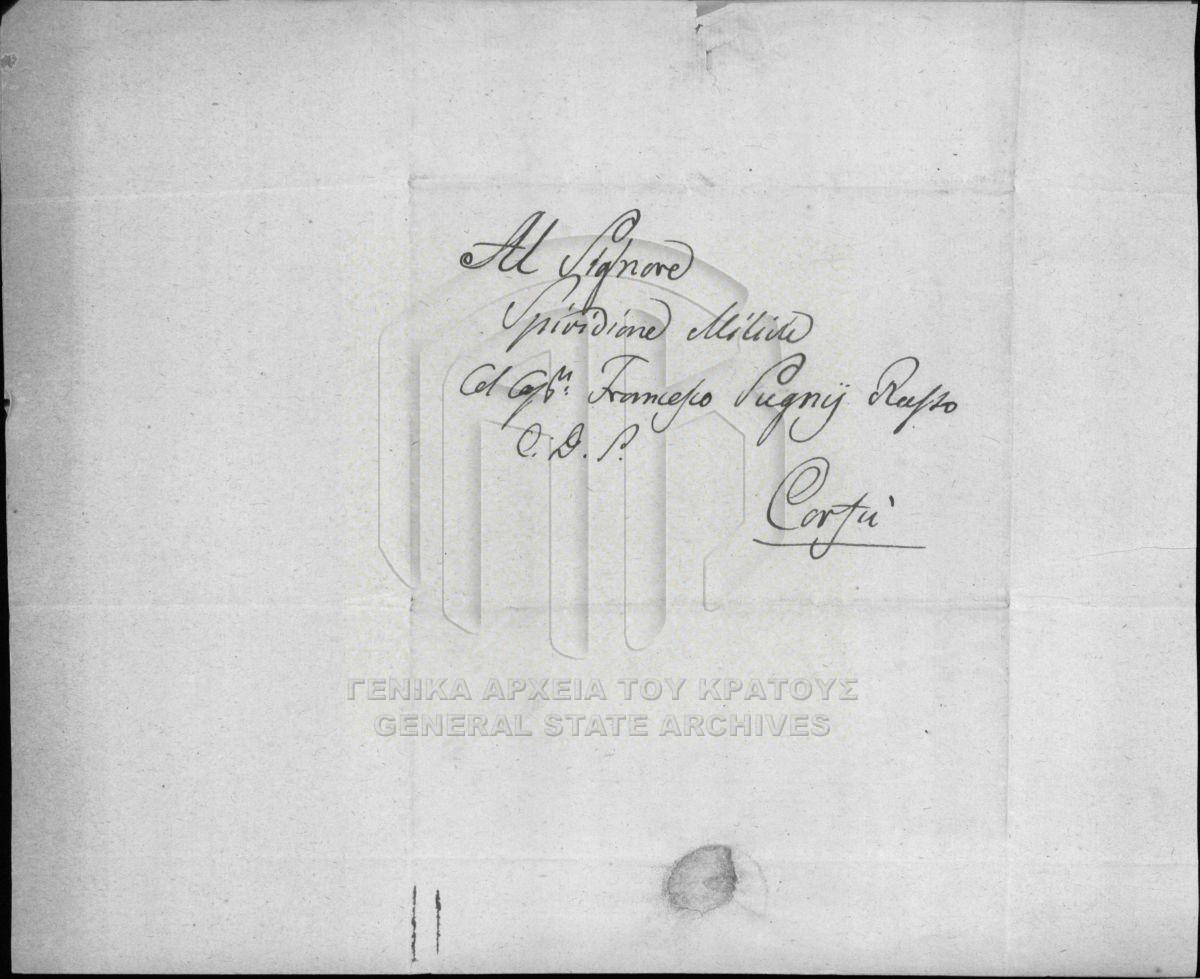 Al Signore
Spiridione Miliste
Francesco Pugnij Russo
C. D. S.
Corfù
ΓΕΝΙΚΑ ΑΡΧΕΙΑ ΤΟΥ ΚΡΑΤΟΥΣ
GENERAL STATE ARCHIVES